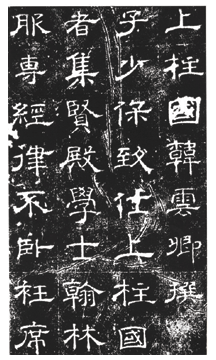 上柱國韓雲卿撰
子少保致仕上柱國
者集賢殿學士翰林
服專經律不卧衽席